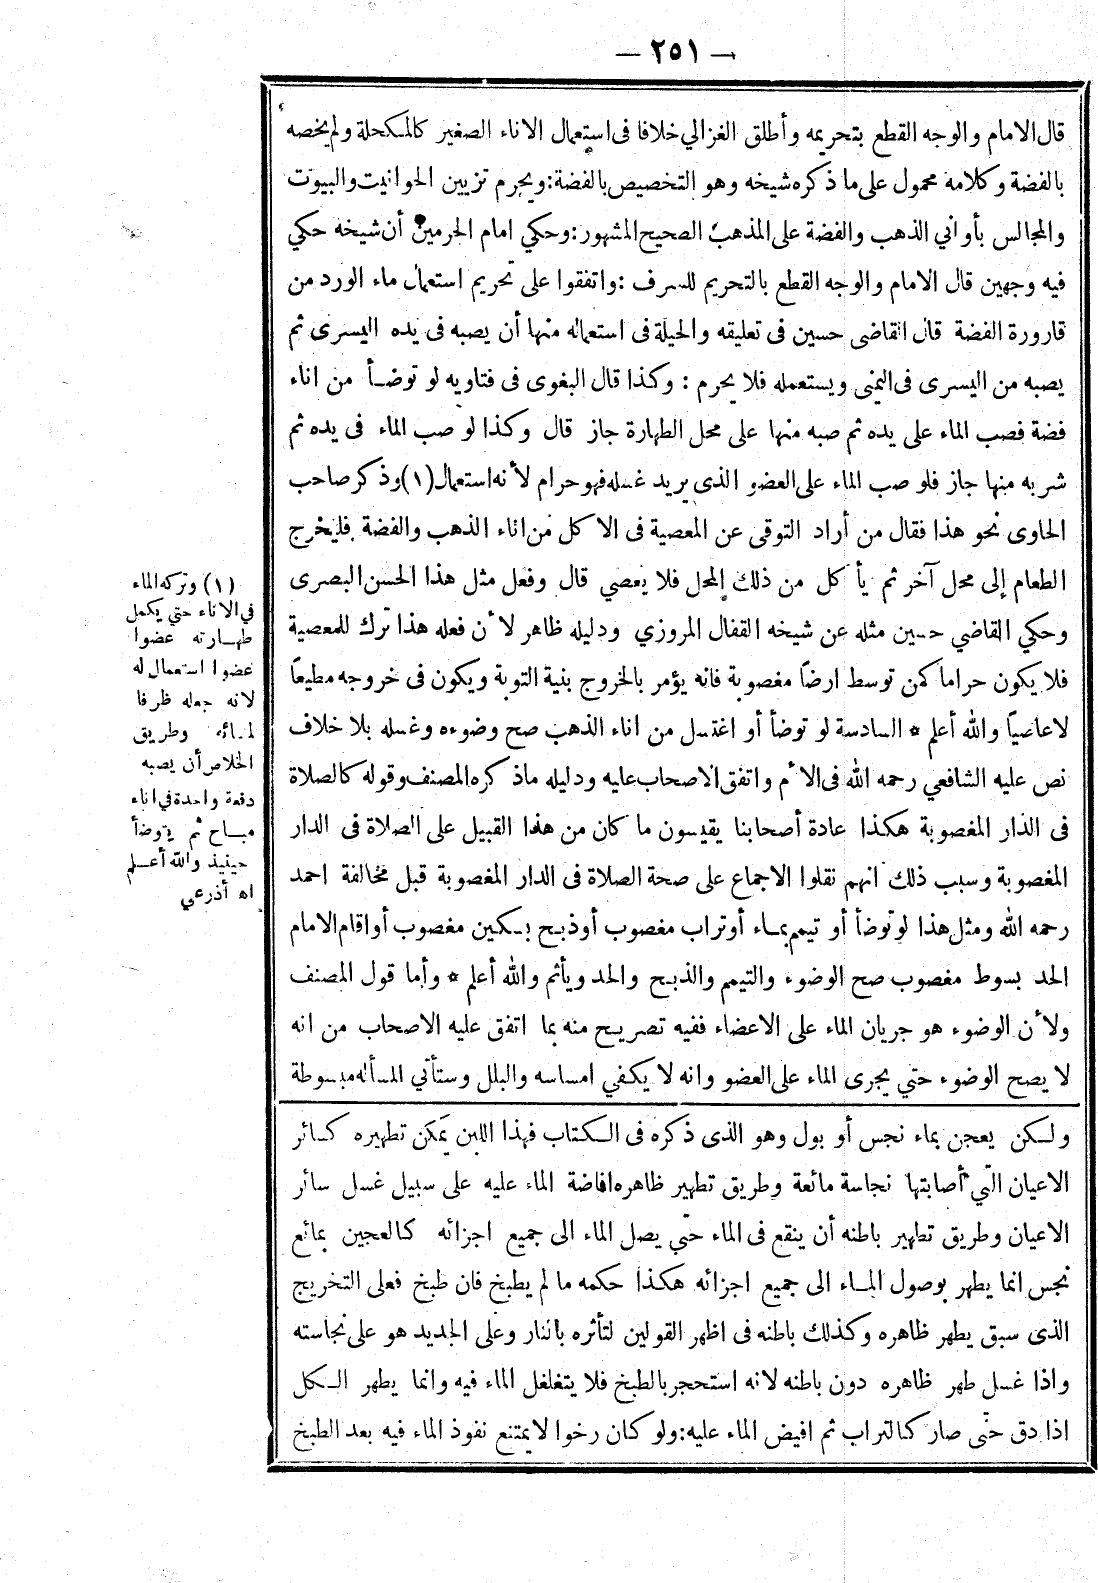 — ٢٥١ —
قال الامام والوجه القطع بتحريمه وأطلق الغزالي خلافا فى استعمال الاناء الصغير كالمكحلة ولم يخصه
بالفضة وكلامه محمول على ما ذكره شيخه وهو التخصيص بالفضة : ويحرم تزيين الحوانيت والبيوت
والمجالس بأواني الذهب والفضة على المذهب الصحيح المشهور : وحكي امام الحرمين أن شيخه حكي
فيه وجهين قال الامام والوجه القطع بالتحريم للسرف : واتفقوا على تحريم استعمال ماء الورد من
قارورة الفضة قال القاضى حسين فى تعليقه والحيلة فى استعماله منها أن يصبه فى يده اليسرى ثم
يصبه من اليسرى فى اليمنى ويستعمله فلا يحرم : وكذا قال البغوى فى فتاويه لو توضأ من اناء
فضة فصب الماء على يده ثم صبه منها على محل الطهارة جاز قال وكذا لو صب الماء فى يده ثم
شربه منها جاز فلو صب الماء على العضو الذى يريد غسله فهو حرام لأنه استعمال (١) وذكر صاحب
الحاوى نحو هذا فقال من أراد التوقى عن المعصية فى الاكل من اناء الذهب والفضة فليخرج
الطعام إلى محل آخر ثم يأكل من ذلك المحل فلا يعصي قال وفعل مثل هذا الحسن البصرى
وحكي القاضي حسين مثله عن شيخه القفال المروزي ودليله ظاهر لأن فعله هذا ترك للمعصية
فلا يكون حراما كمن توسط ارضًا مغصوبة فانه يؤمر بالخروج بنية التوبة ويكون فى خروجه مطيعًا
لا عاصيًا والله أعلم * السادسة لو توضأ أو اغتسل من اناء الذهب صح وضوءه وغسله بلا خلاف
نص عليه الشافعي رحمه الله فى الأم واتفق الاصحاب عليه ودليله ماذكره المصنف وقوله كالصلاة
فى الدار المغصوبة هكذا عادة أصحابنا يقيسون ما كان من هذا القبيل على الصلاة فى الدار
المغصوبة وسبب ذلك انهم نقلوا الاجماع على صحة الصلاة فى الدار المغصوبة قبل مخالفة احمد
رحمه الله ومثل هذا لو توضأ أو تيمم بماء أو تراب مغصوب أو ذبح بسكين مغصوب أو اقام الامام
الحد بسوط مغصوب صح الوضوء والتيمم والذبح والحد ويأثم والله أعلم * وأما قول المصنف
ولأن الوضوء هو جريان الماء على الاعضاء ففيه تصريح منه بما اتفق عليه الاصحاب من انه
لا يصح الوضوء حتي يجرى الماء على العضو وانه لا يكفي امساسه والبلل وستأتي المسأله مبسوطة
(١) وتركه الماء
في الاناء حتي يكمل
طهارته عضوا
عضوا استعمال له
لانه جعله ظرفا
لمائه وطريق
الخلاص أن يصبه
دفعة واحدة في اناء
مباح ثم يتوضأ
حينئذ والله أعلم
اه أذرعي
ولكن يعجن بماء نجس أو بول وهو الذى ذكره فى الكتاب فهذا اللبن يمكن تطهيره كسائر
الاعيان التي أصابتها نجاسة مائعة وطريق تطهير ظاهره افاضة الماء عليه على سبيل غسل سائر
الاعيان وطريق تطهير باطنه أن ينقع فى الماء حتي يصل الماء الى جميع اجزائه كالعجين بمائع
نجس انما يطهر بوصول الماء الى جميع اجزائه هكذا حكمه ما لم يطبخ فان طبخ فعلى التخريج
الذى سبق يطهر ظاهره وكذلك باطنه فى اظهر القولين لتأثره بالنار وعلى الجديد هو على نجاسته
واذا غسل طهر ظاهره دون باطنه لانه استحجر بالطبخ فلا يتغلغل الماء فيه وانما يطهر الكل
اذا دق حتي صار كالتراب ثم افيض الماء عليه : ولو كان رخوا لا يمتنع نفوذ الماء فيه بعد الطبخ